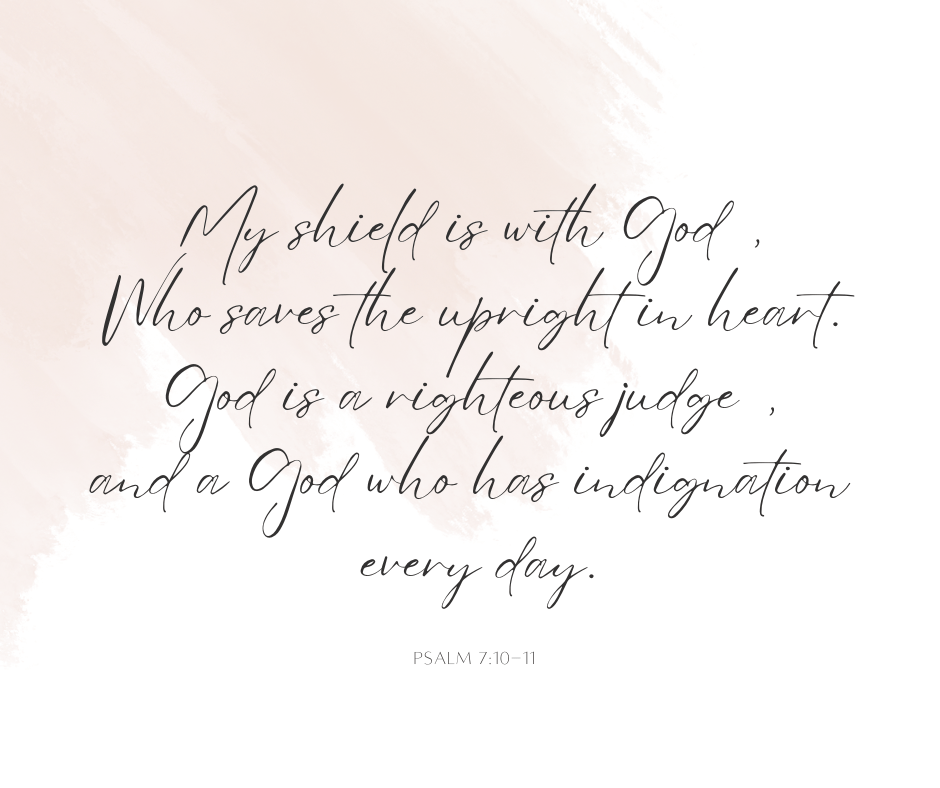 My shield is with God ,
Who saves the upright in heart.
God is a righteous judge ,
and a God who has indignation
every day.
PSALM 7:10–11